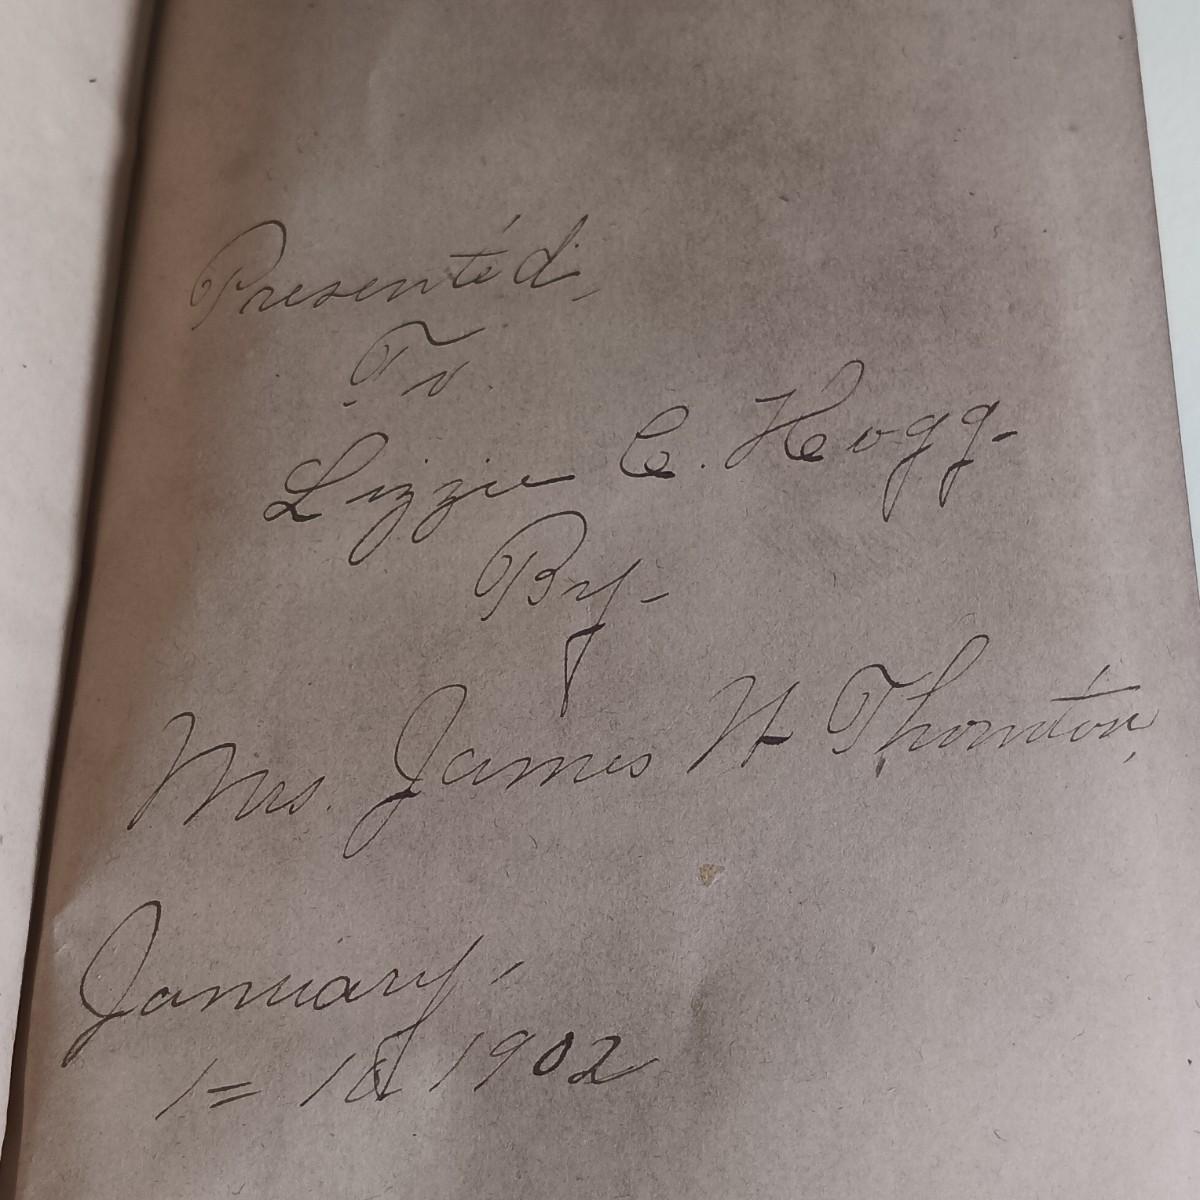 Presented,
To
Lizzie C. Hogg-
By-
Mrs. James H Thornton,
January-
1= 1902